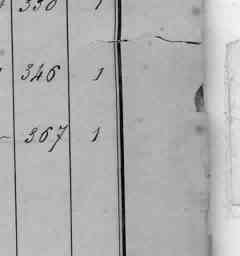 330 1
346 1
367 1